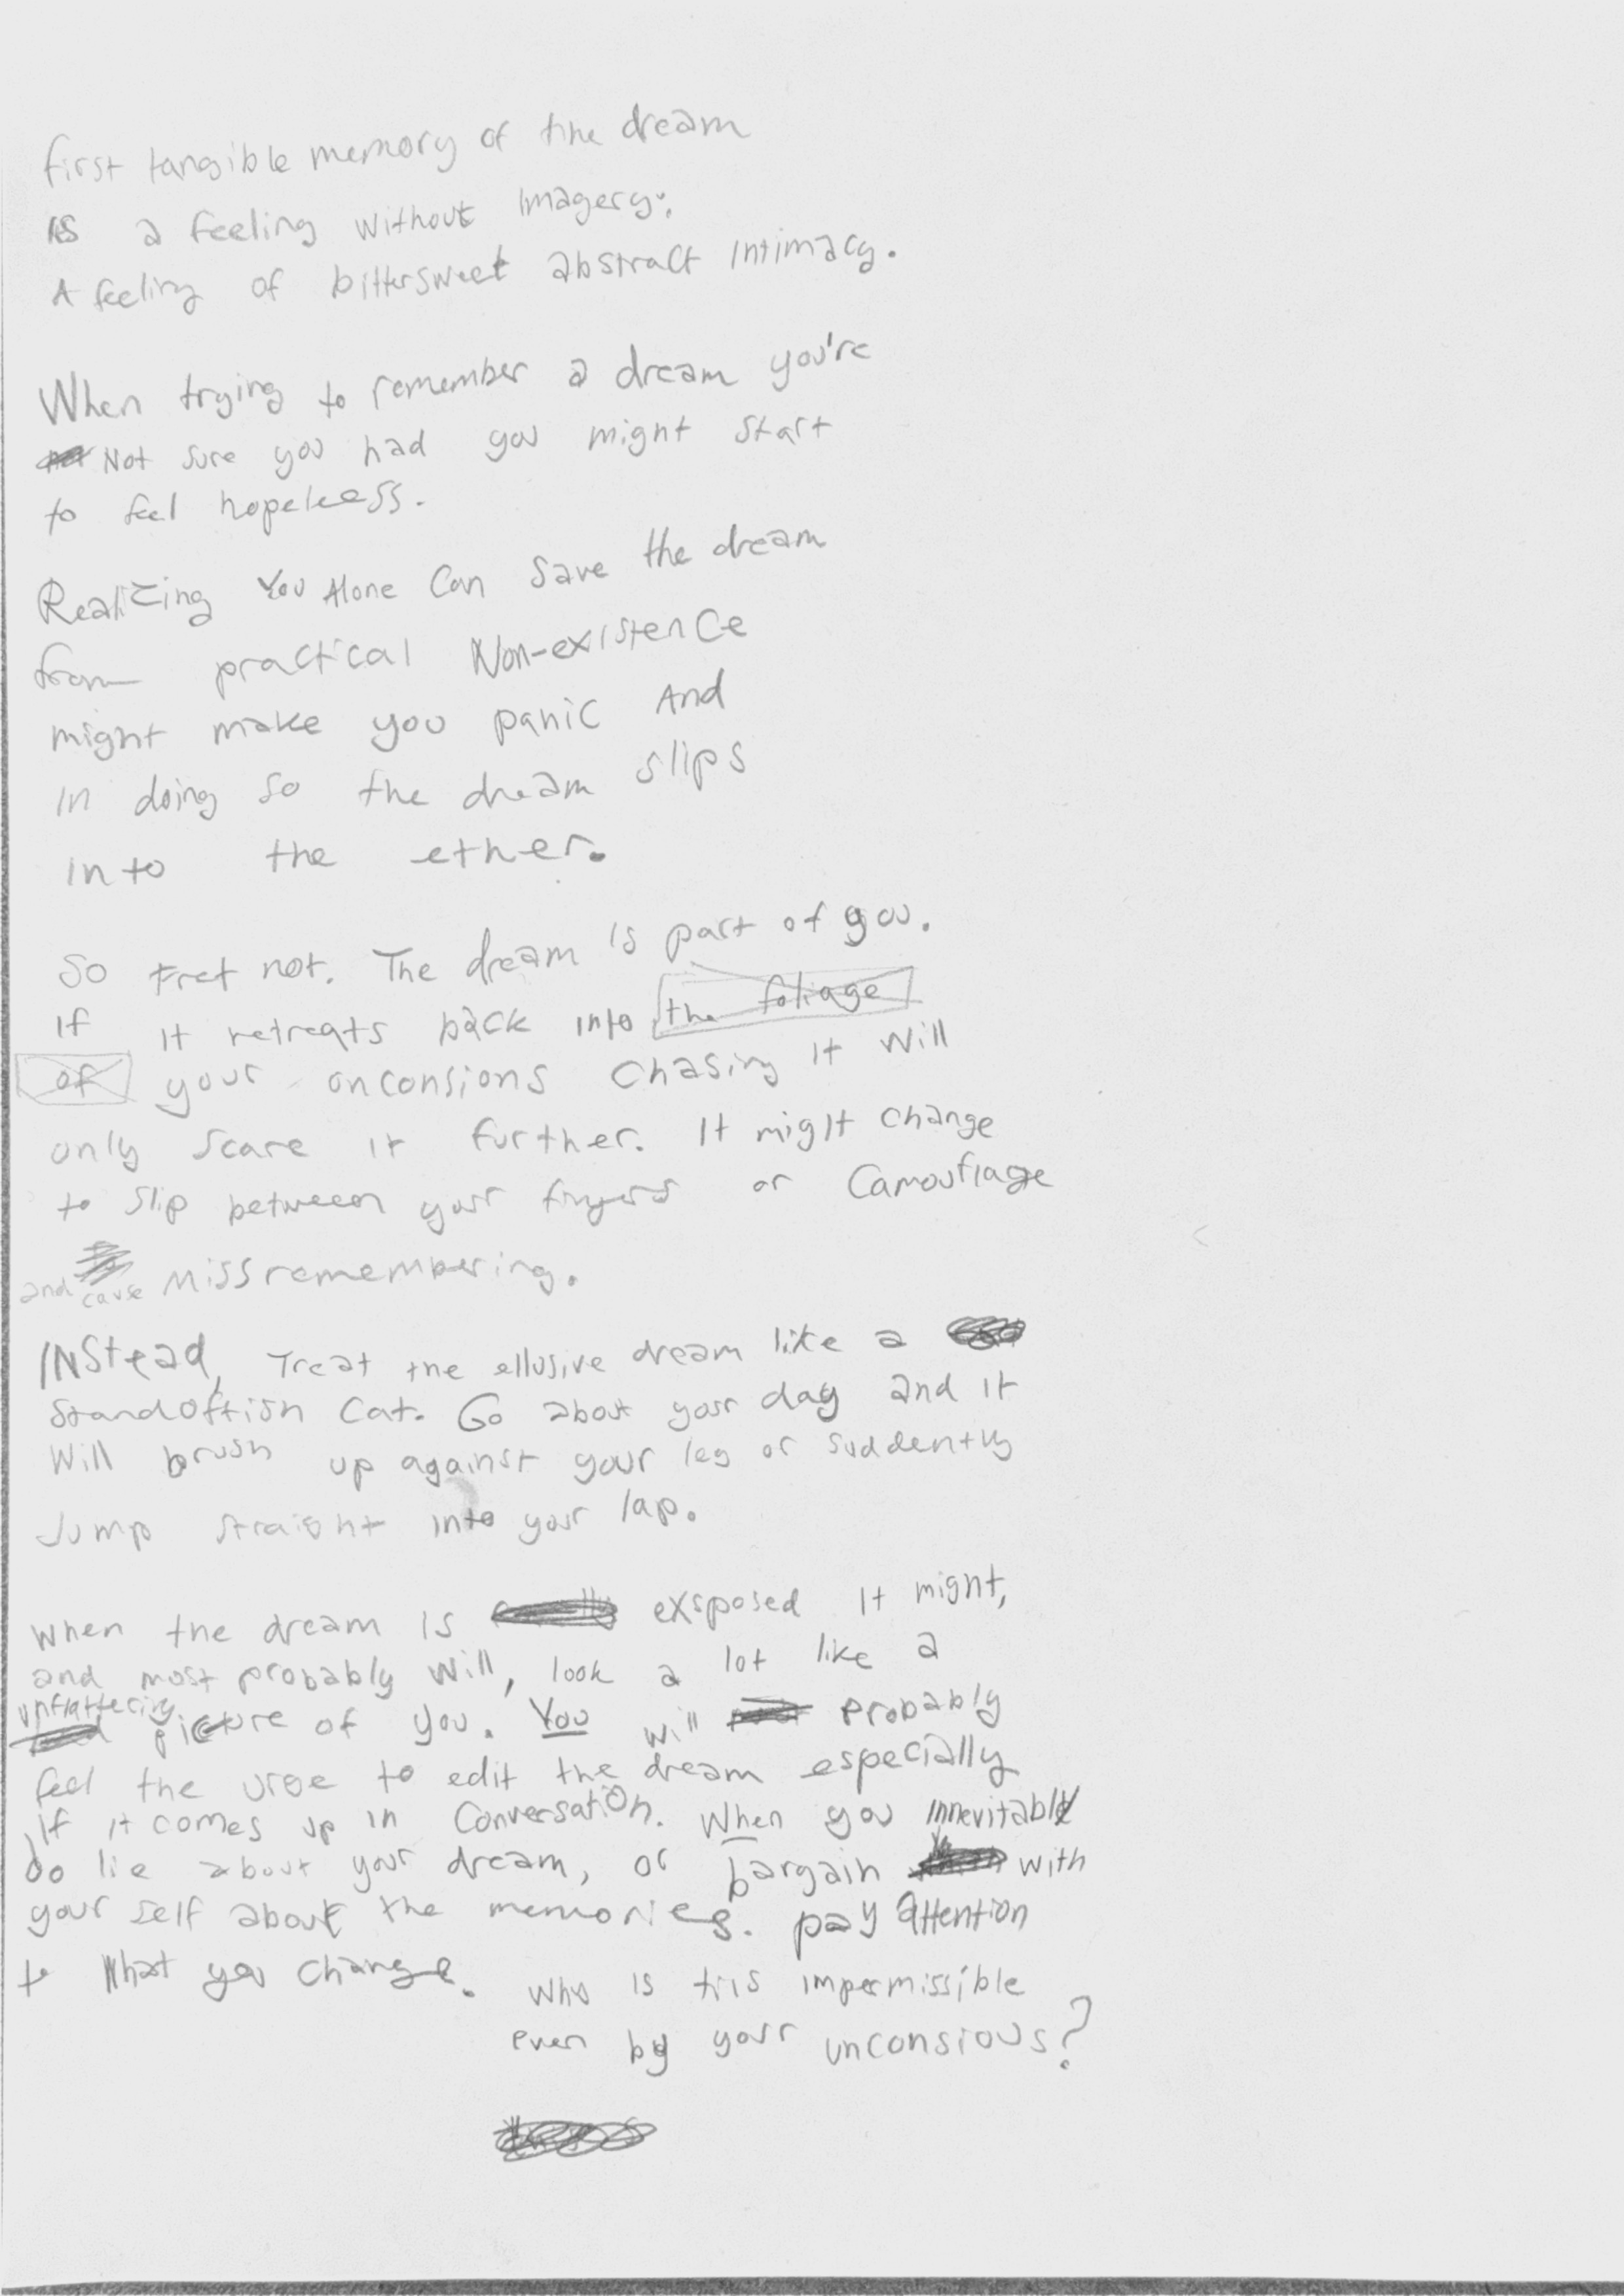 first tangible memory of the dream
is a feeling without imagery.
A feeling of bittersweet abstract intimacy.
When trying to remember a dream you're
Not sure you had you might start
to feel hopeless.
Realizing You Alone Can Save the dream
from practical Non-existence
might make you panic And
in doing so the dream slips
into the ether.
So Fret not. The dream is part of you.
If it retreats back into the foliage
of your onconsions Chasing it will
only scare it further. It migIt change
to slip between your fingers or Camouflage
and cause Missremembering.
INStead, Treat the ellusive dream like a
Standoffish Cat. Go about your day and it
Will brush up against your leg or suddently
Jump straight into your lap.
When the dream is exsposed it might,
and most probably will, look a lot like a
unflattering picture of you. You will probably
feel the urge to edit the dream especially
if it comes up in Conversation. When you innevitably
do lie about your dream, or bargain with
your self about the memories. pay attention
to What you change.
Who is this impermissible
even by your unconsious?